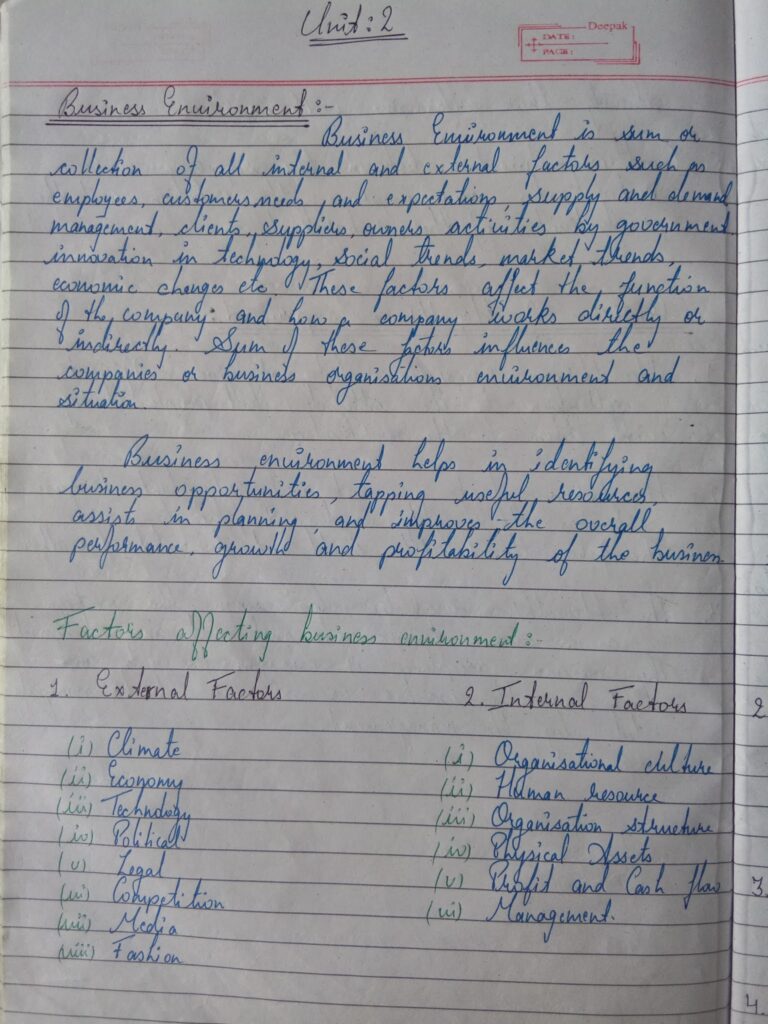 Unit:2
Deepak
DATE:
PAGE:
Business Environment:-
Business Environment is sum or
collection of all internal and external factors such as
employees, customers needs and expectations, supply and demand
management, clients, suppliers, owners, activities by government
innovation in technology, social trends, market trends,
economic changes etc. These factors affect the function
of the company and how a company works directly or
indirectly. Sum of these factors influences the
companies or business organisations environment and
situation.
Business environment helps in identifying
business opportunities, tapping useful resources,
assists in planning, and improves the overall
performance, growth and profitability of the business.
Factors affecting business environment:-
1. External Factors
(i) Climate
(ii) Economy
(iii) Technology
(iv) Political
(v) Legal
(vi) Competition
(vii) Media
(viii) Fashion
2. Internal Factors
(i) Organisational culture
(ii) Human resource
(iii) Organisation structure
(iv) Physical Assets
(v) Profit and Cash flow
(vi) Management.
2
3.
4.